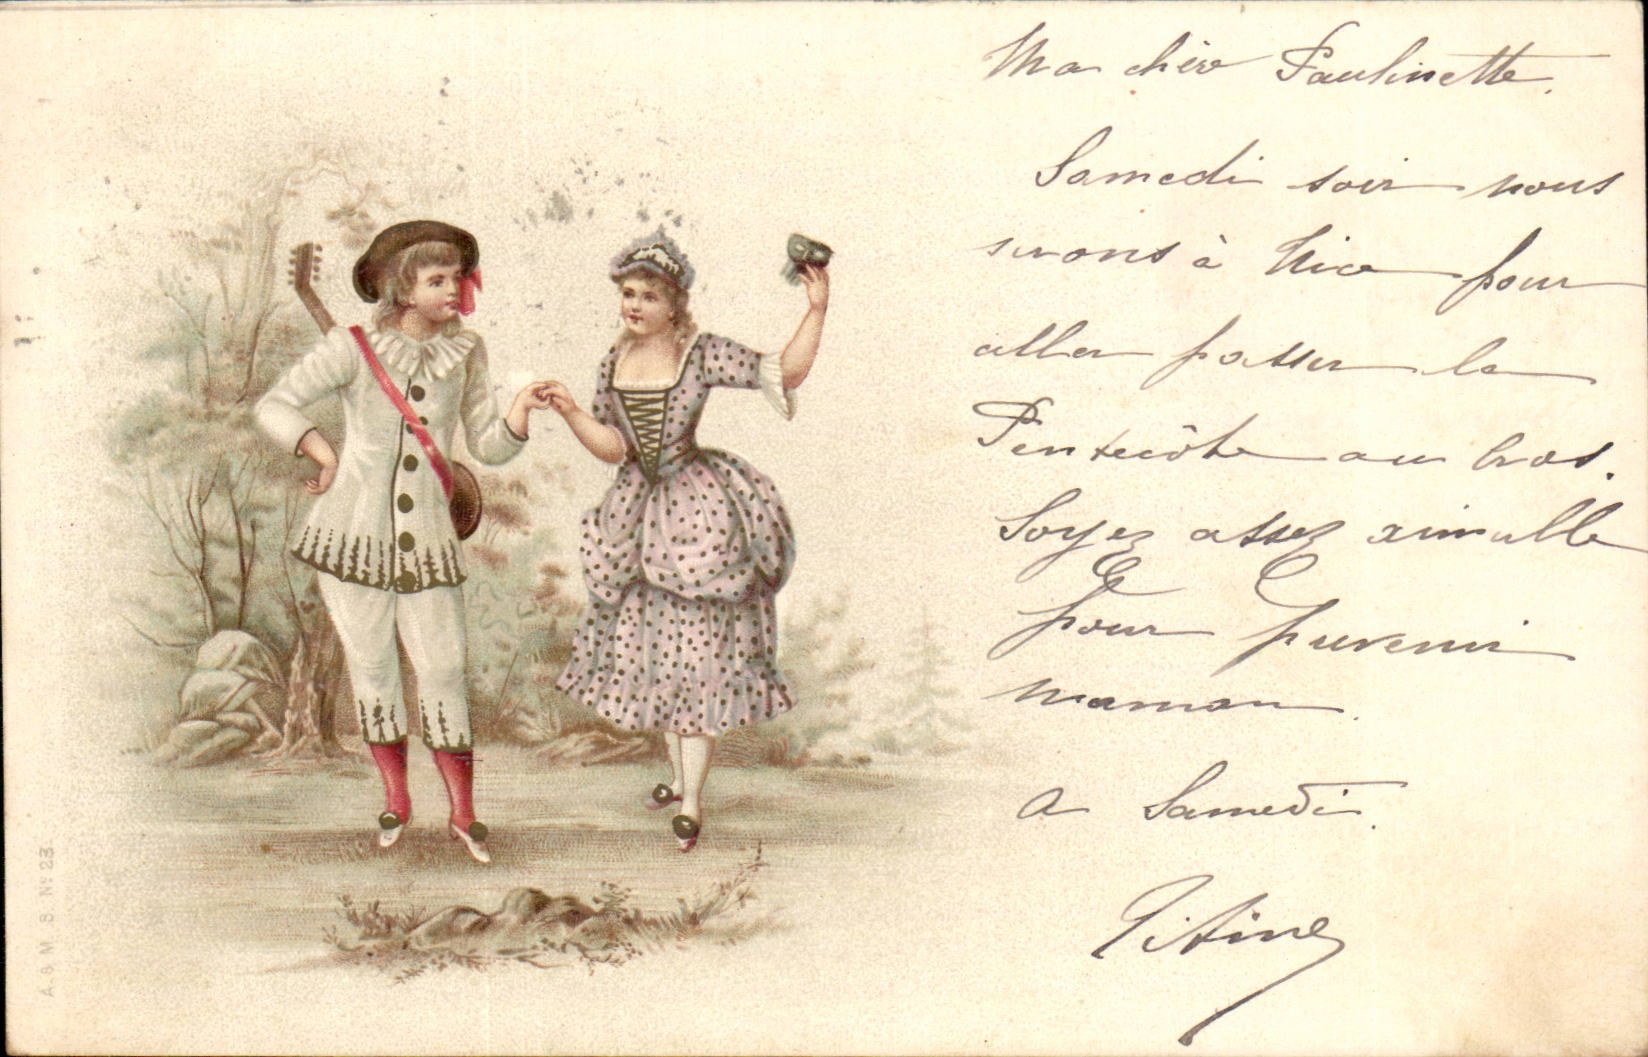 Ma chère Paulinette.
Samedi soir nous
serons à Nice pour
aller passer la
Pentecôte au bras.
Soyez assez aimable
pour prévenir
maman.
A Samedi.
Titine
A. & M. B. Nº 23.